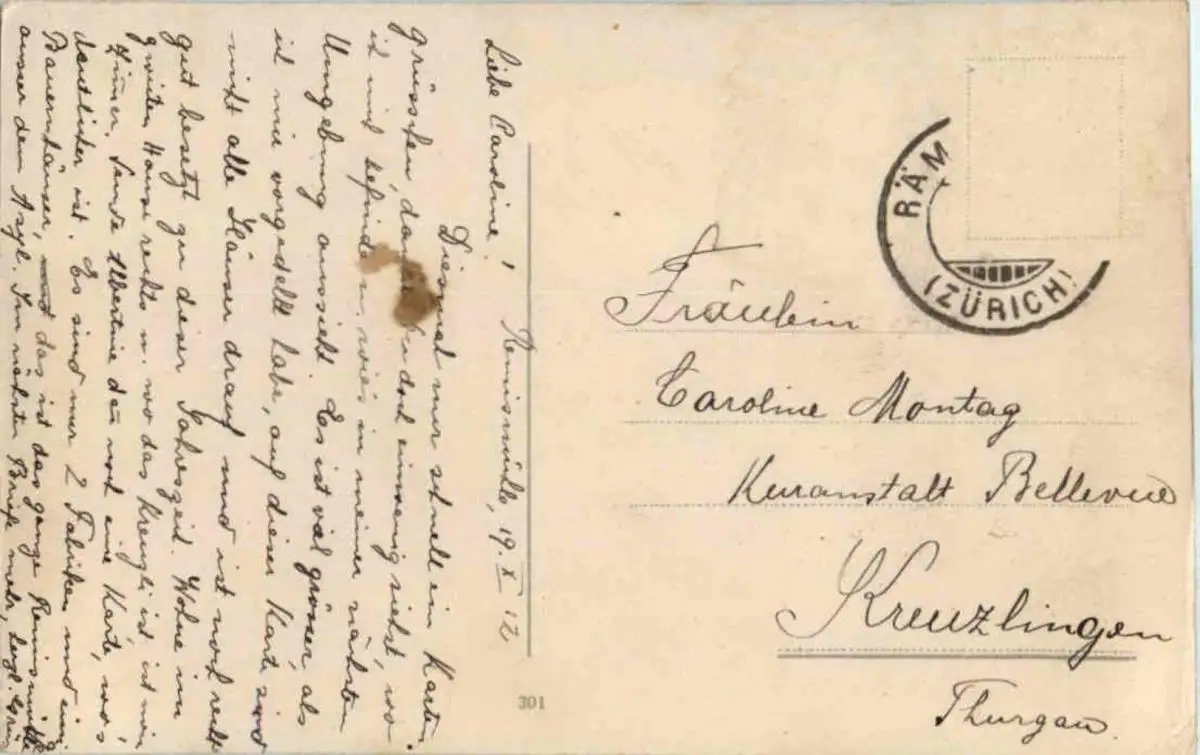 Remismühle, 19. X 12
Liebe Caroline!
Diesmal nur schnell ein Karten-
grüsschen, doch einwenig siehst, wo
ich mich befinde u. wies in meiner nächsten
Umgebung aussieht. Es ist viel grösser, als
ich mir vorgestellt habe, auf dieser Karte sind
nicht alle Häuser drauf und ist noch recht
gut besetzt zu dieser Jahreszeit. Wohne im
zweiten Hause rechts u. wo das Kreuzli ist ist mein
Zimmer. Sende Albertine dann noch eine Karte, wo's
deutlicher ist. Es sind nur 2 Fabriken und ein
Bauernhäuser, und das ist das ganze Remismühle
ausser dem Asyl. Im nächsten Briefe mehr, herzl.
301
RÄM
(ZÜRICH)
Fräulein
Caroline Montag
Kuranstalt Bellevue
Kreuzlingen
Thurgau.